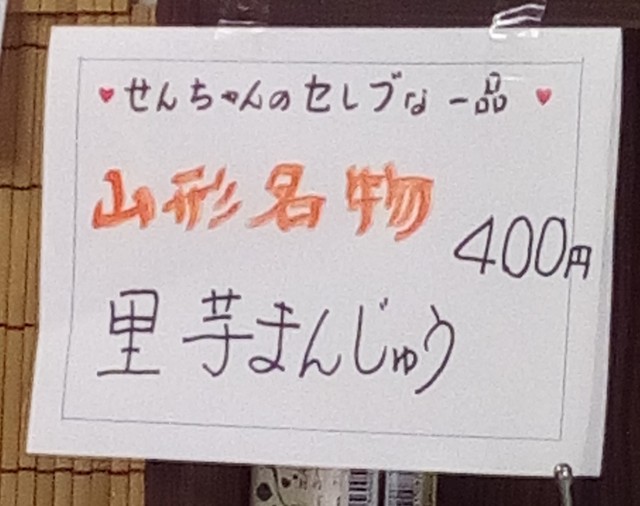 ♥せんちゃんのセレブな一品♥
山形名物
400円
里芋まんじゅう